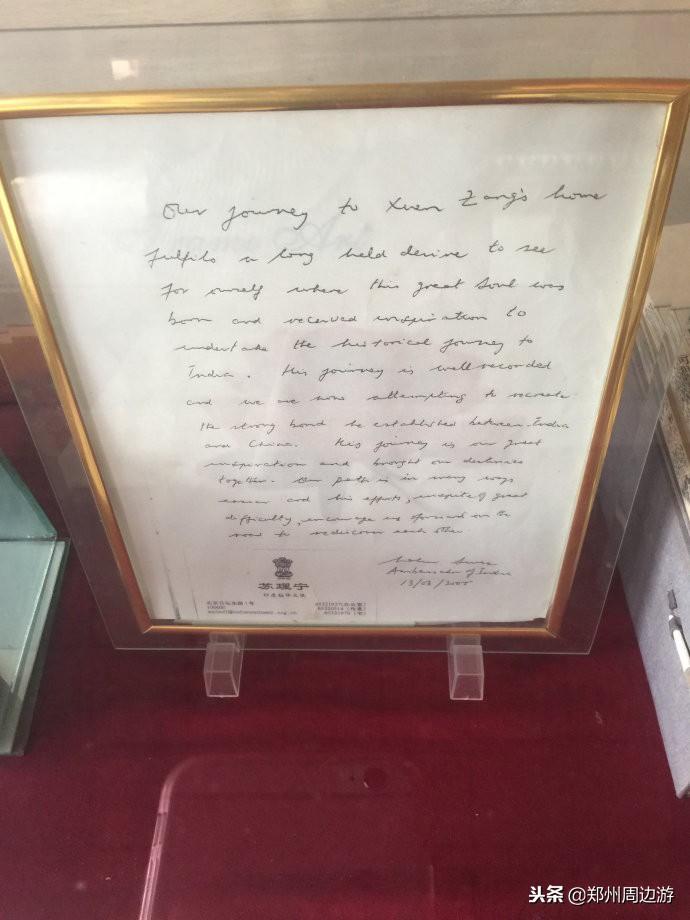 Our journey to Xuan Zang's home
fulfils a long held desire to see
for ourself where this great soul was
born and received inspiration to
undertake the historical journey to
India. His journey is well recorded
and we are now attempting to recreate
the strong bond he established between India
and China. His journey is our great
inspiration and brought our destinies
together. Our path is in many ways
easier and his efforts, inspite of great
difficulty, encourage us forward on the
road to rediscover each other
Ambassador of India
苏理宁
印度驻华大使
头条 @郑州周边游